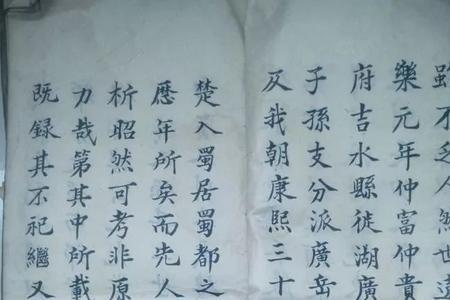 不乏人然世遠
樂元年仲富仲貴
府吉水縣徙湖廣
子孫支分派廣岳
及我朝康熙三十
楚入蜀居蜀都之
歷年所矣而先人
析昭然可考非原
力哉第其中所載
既録其不祀繼又